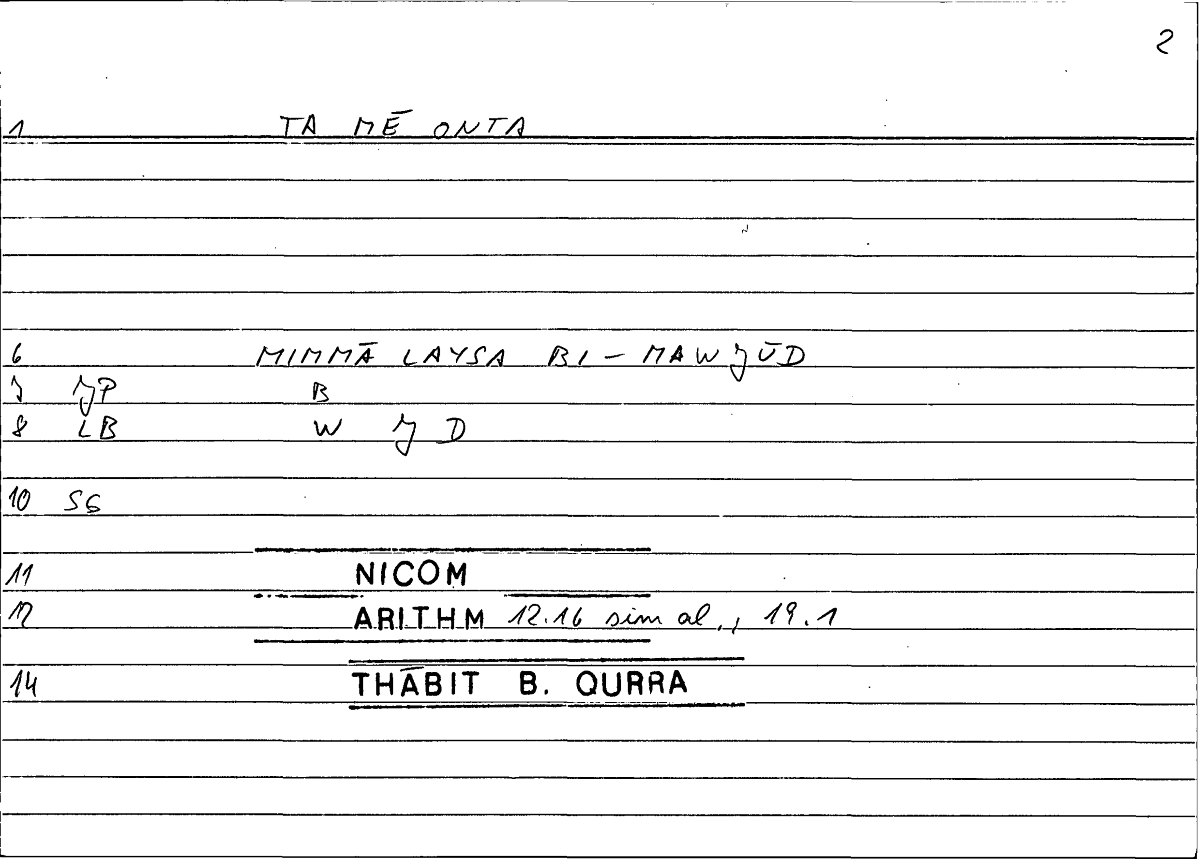 2
1 TA MĒ ONTA
6 MIMMĀ LAYSA BI-MAWJŪD
7 JP B
8 LB W J D
10 SG
11 NICOM
12 ARITHM 12.16 sim al., 19.1
14 THĀBIT B. QURRA